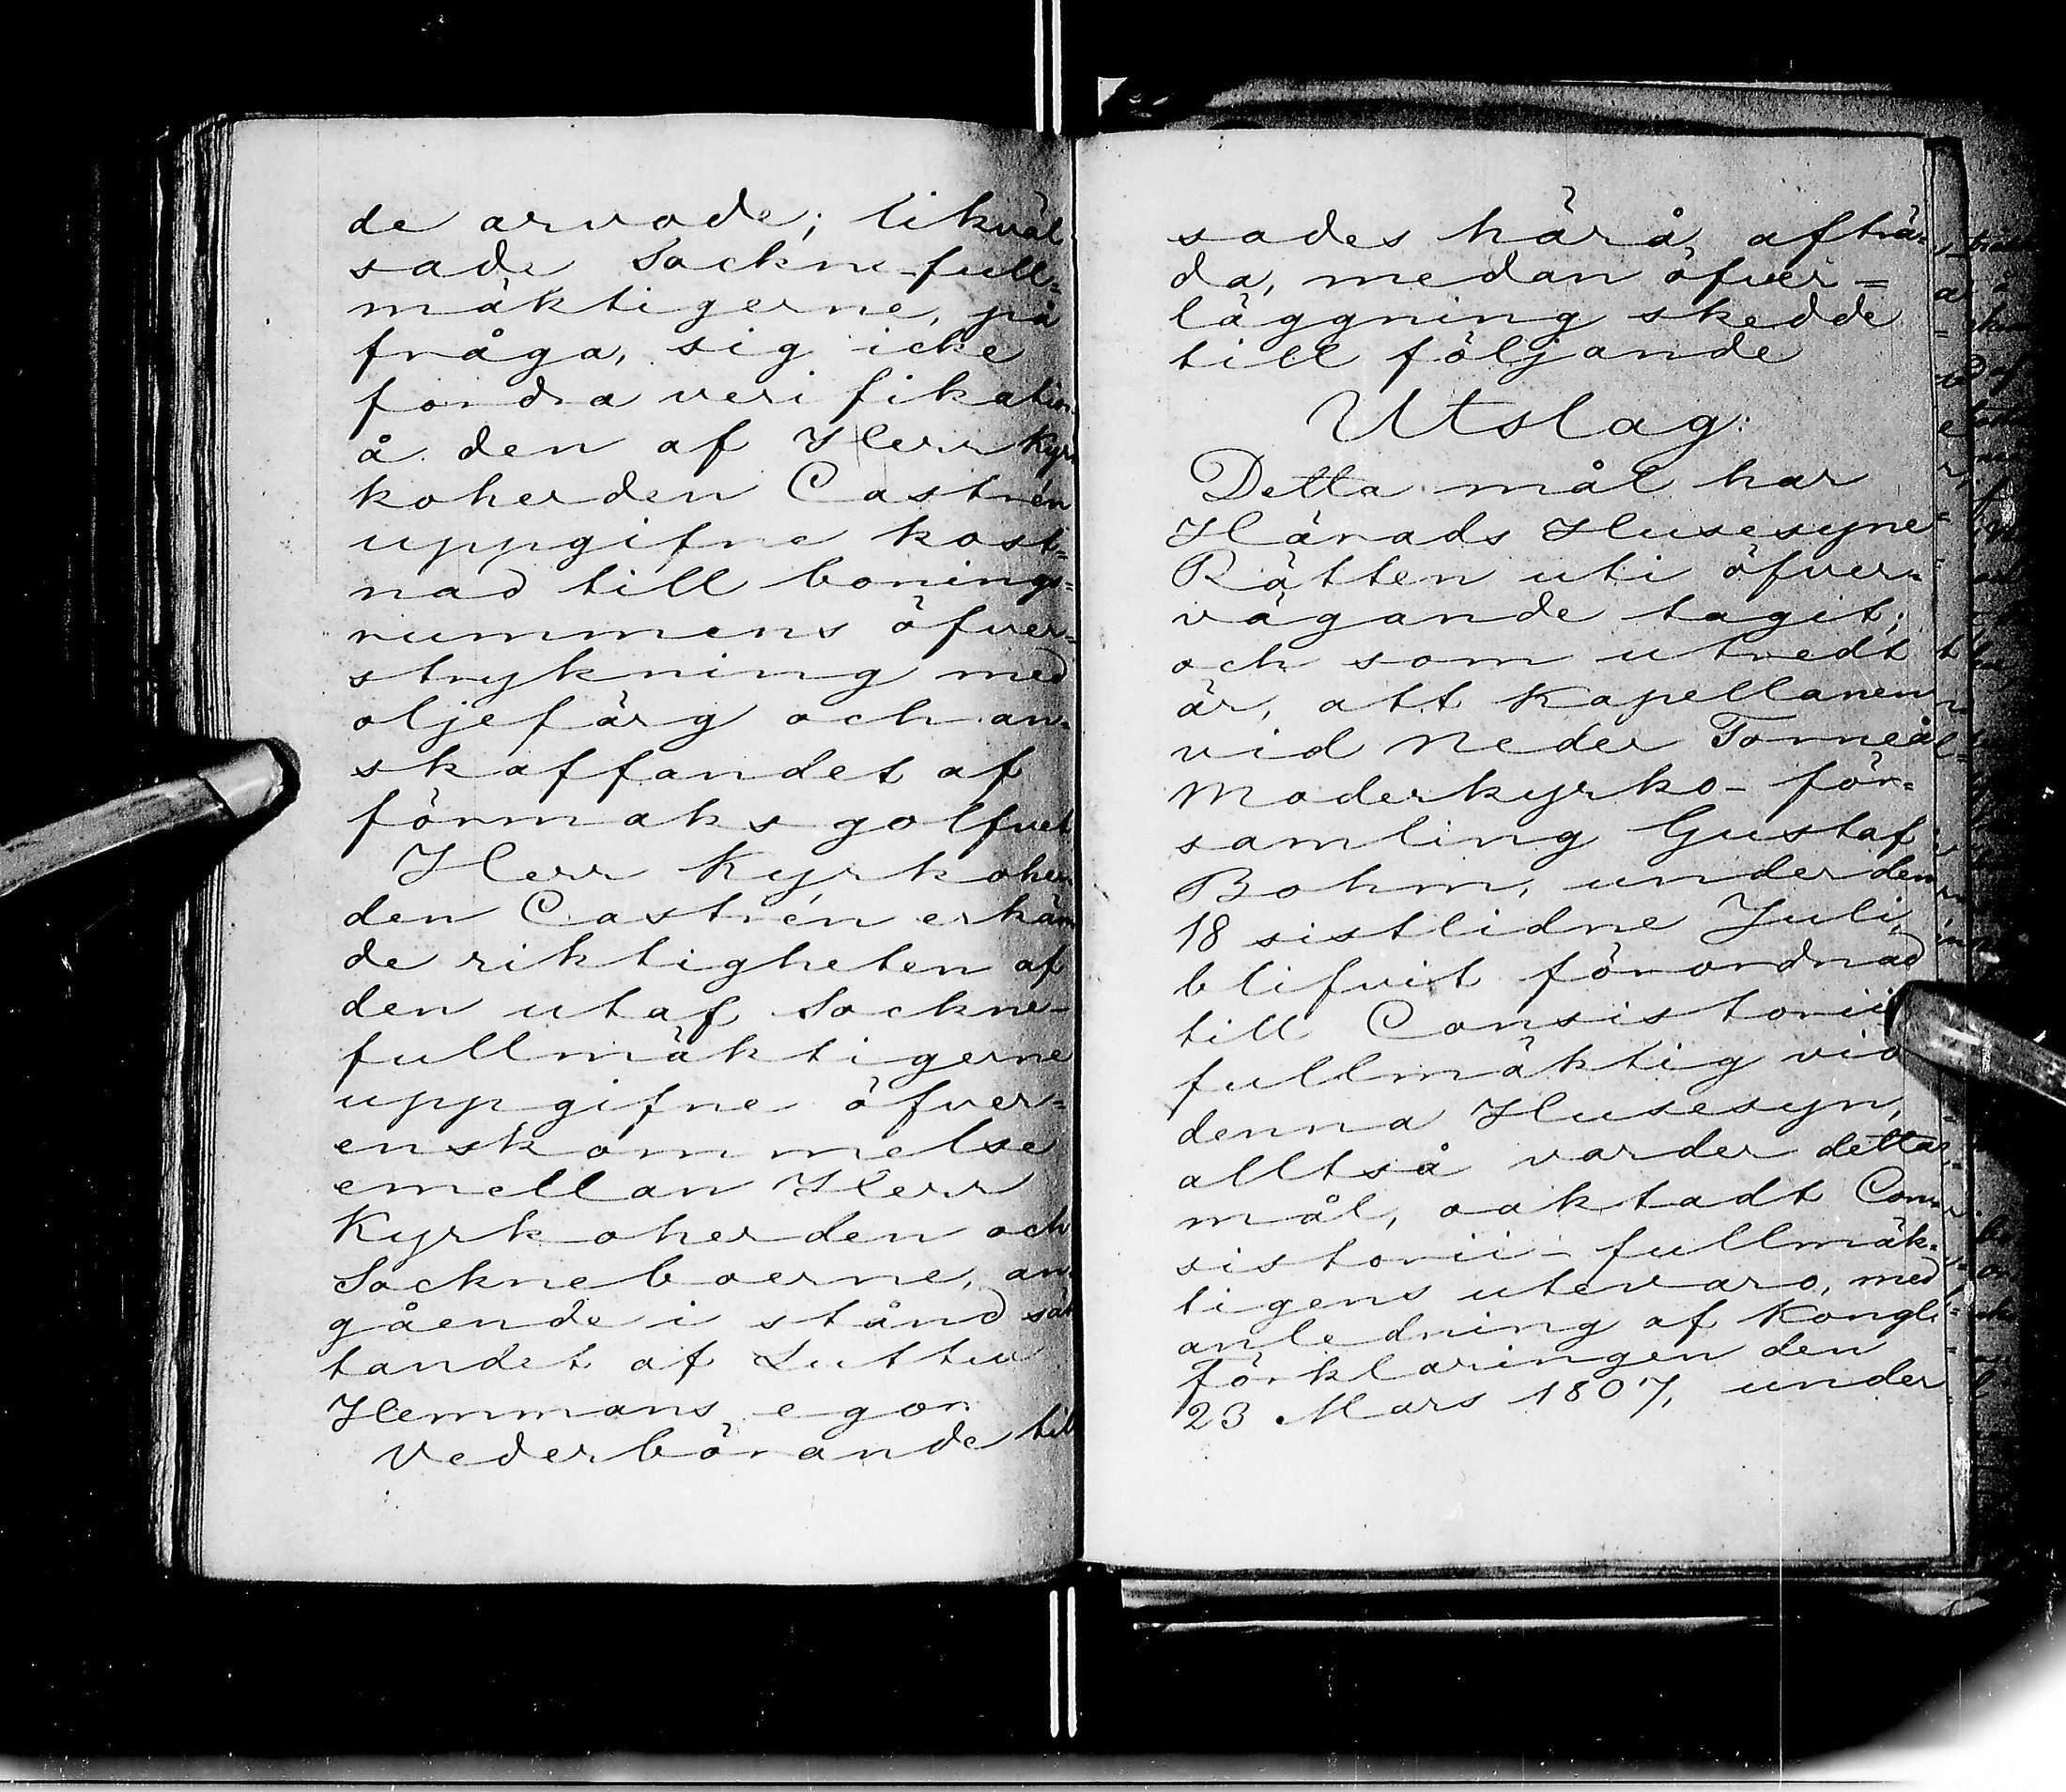 de arvode; likväl
sade Sockne-full=
mäktigerne, på
fråga, sig icke
fordra verifikation
å den af Herr Kyr
koherden Castrén
uppgifne kost=
nad till bonings=
rummens öfver=
strykning med
oljefärg och an=
skaffandet af
förmaks golfvet
Herr Kyrkoher
den Castrén erkän
de riktigheten af
den utaf Sockne-
fullmäktigerne
uppgifne öfver=
enskommelse
emellan Herr
Kyrkoherden och
Sockneboerne, an=
gående i stånd sät
tandet af Luttu
Hemmans egor.
Vederbörande till
sades härå, afträ=
da, medan öfver=
läggning skedde
till följande
Utslag:
Detta mål har
Härads Husesyne
Rätten uti öfver=
vägande tagit;
och som utredt
är, att Kapellanen
vid Neder Torneå
Moderkyrko- för=
samling Gustaf
Bohm, under den
18 sistlidne Juli,
blifvit förordnad
till Consistorii
fullmäktig vid
denna Husesyn,
alltså varder detta
mål, oaktadt Con
sistorii-fullmäk=
tigens utevaro, med
anledning af Kongl.
Förklaringen den
23 Mars 1807, under